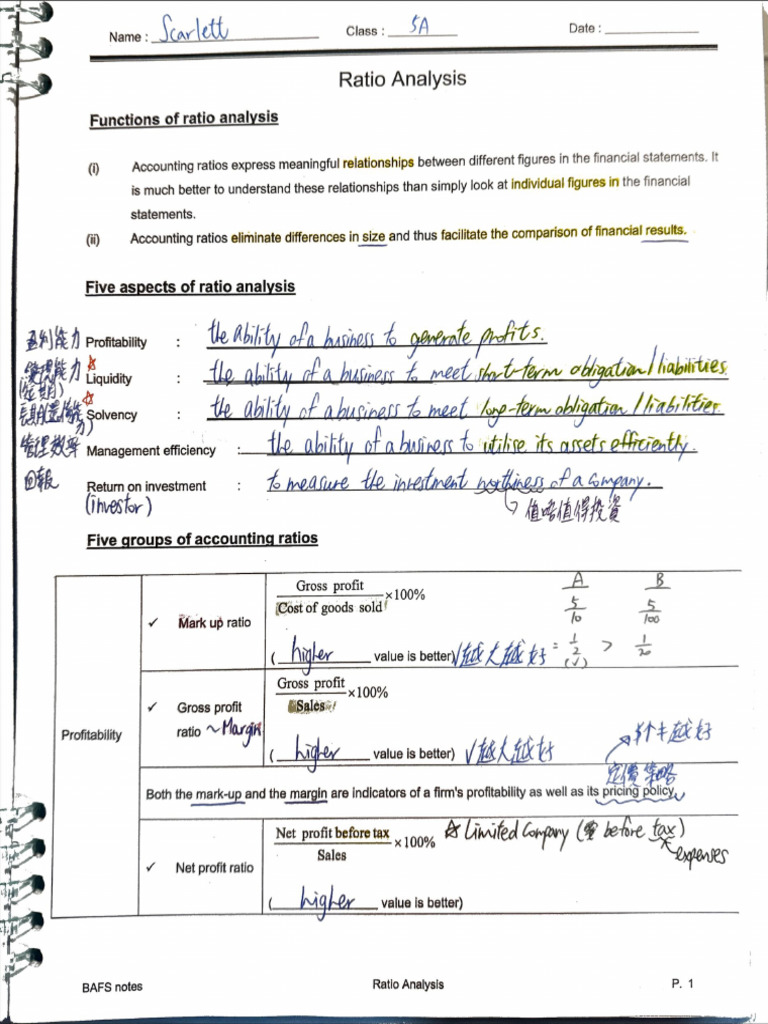 Name : Scarlett Class : 5A Date :
Ratio Analysis
Functions of ratio analysis
(i) Accounting ratios express meaningful relationships between different figures in the financial statements. It
is much better to understand these relationships than simply look at individual figures in the financial
statements.
(ii) Accounting ratios eliminate differences in size and thus facilitate the comparison of financial results.
Five aspects of ratio analysis
盈利能力 Profitability : the ability of a business to generate profits.
Liquidity : the ability of a business to meet short-term obligation/liabilities
Solvency : the ability of a business to meet long-term obligation/liabilities.
管理效率 Management efficiency : the ability of a business to utilise its assets efficiently.
回報 Return on investment : to measure the investment worthiness of a company.
(investor) 值唔值得投資
Five groups of accounting ratios
Profitability
✓ Mark up ratio
Gross profit
Cost of goods sold ×100%
(higher value is better) √越大越好
A B
5 5
10 100
= 1 > 1
2 20
(√)
✓ Gross profit
ratio ~Margin
Gross profit
Sales ×100%
(higher value is better) √越大越好
越好
定價策略
Both the mark-up and the margin are indicators of a firm's profitability as well as its pricing policy.
✓ Net profit ratio
Net profit before tax
Sales ×100%
☆ Limited Company (before tax)
expenses
(higher value is better)
BAFS notes Ratio Analysis P. 1